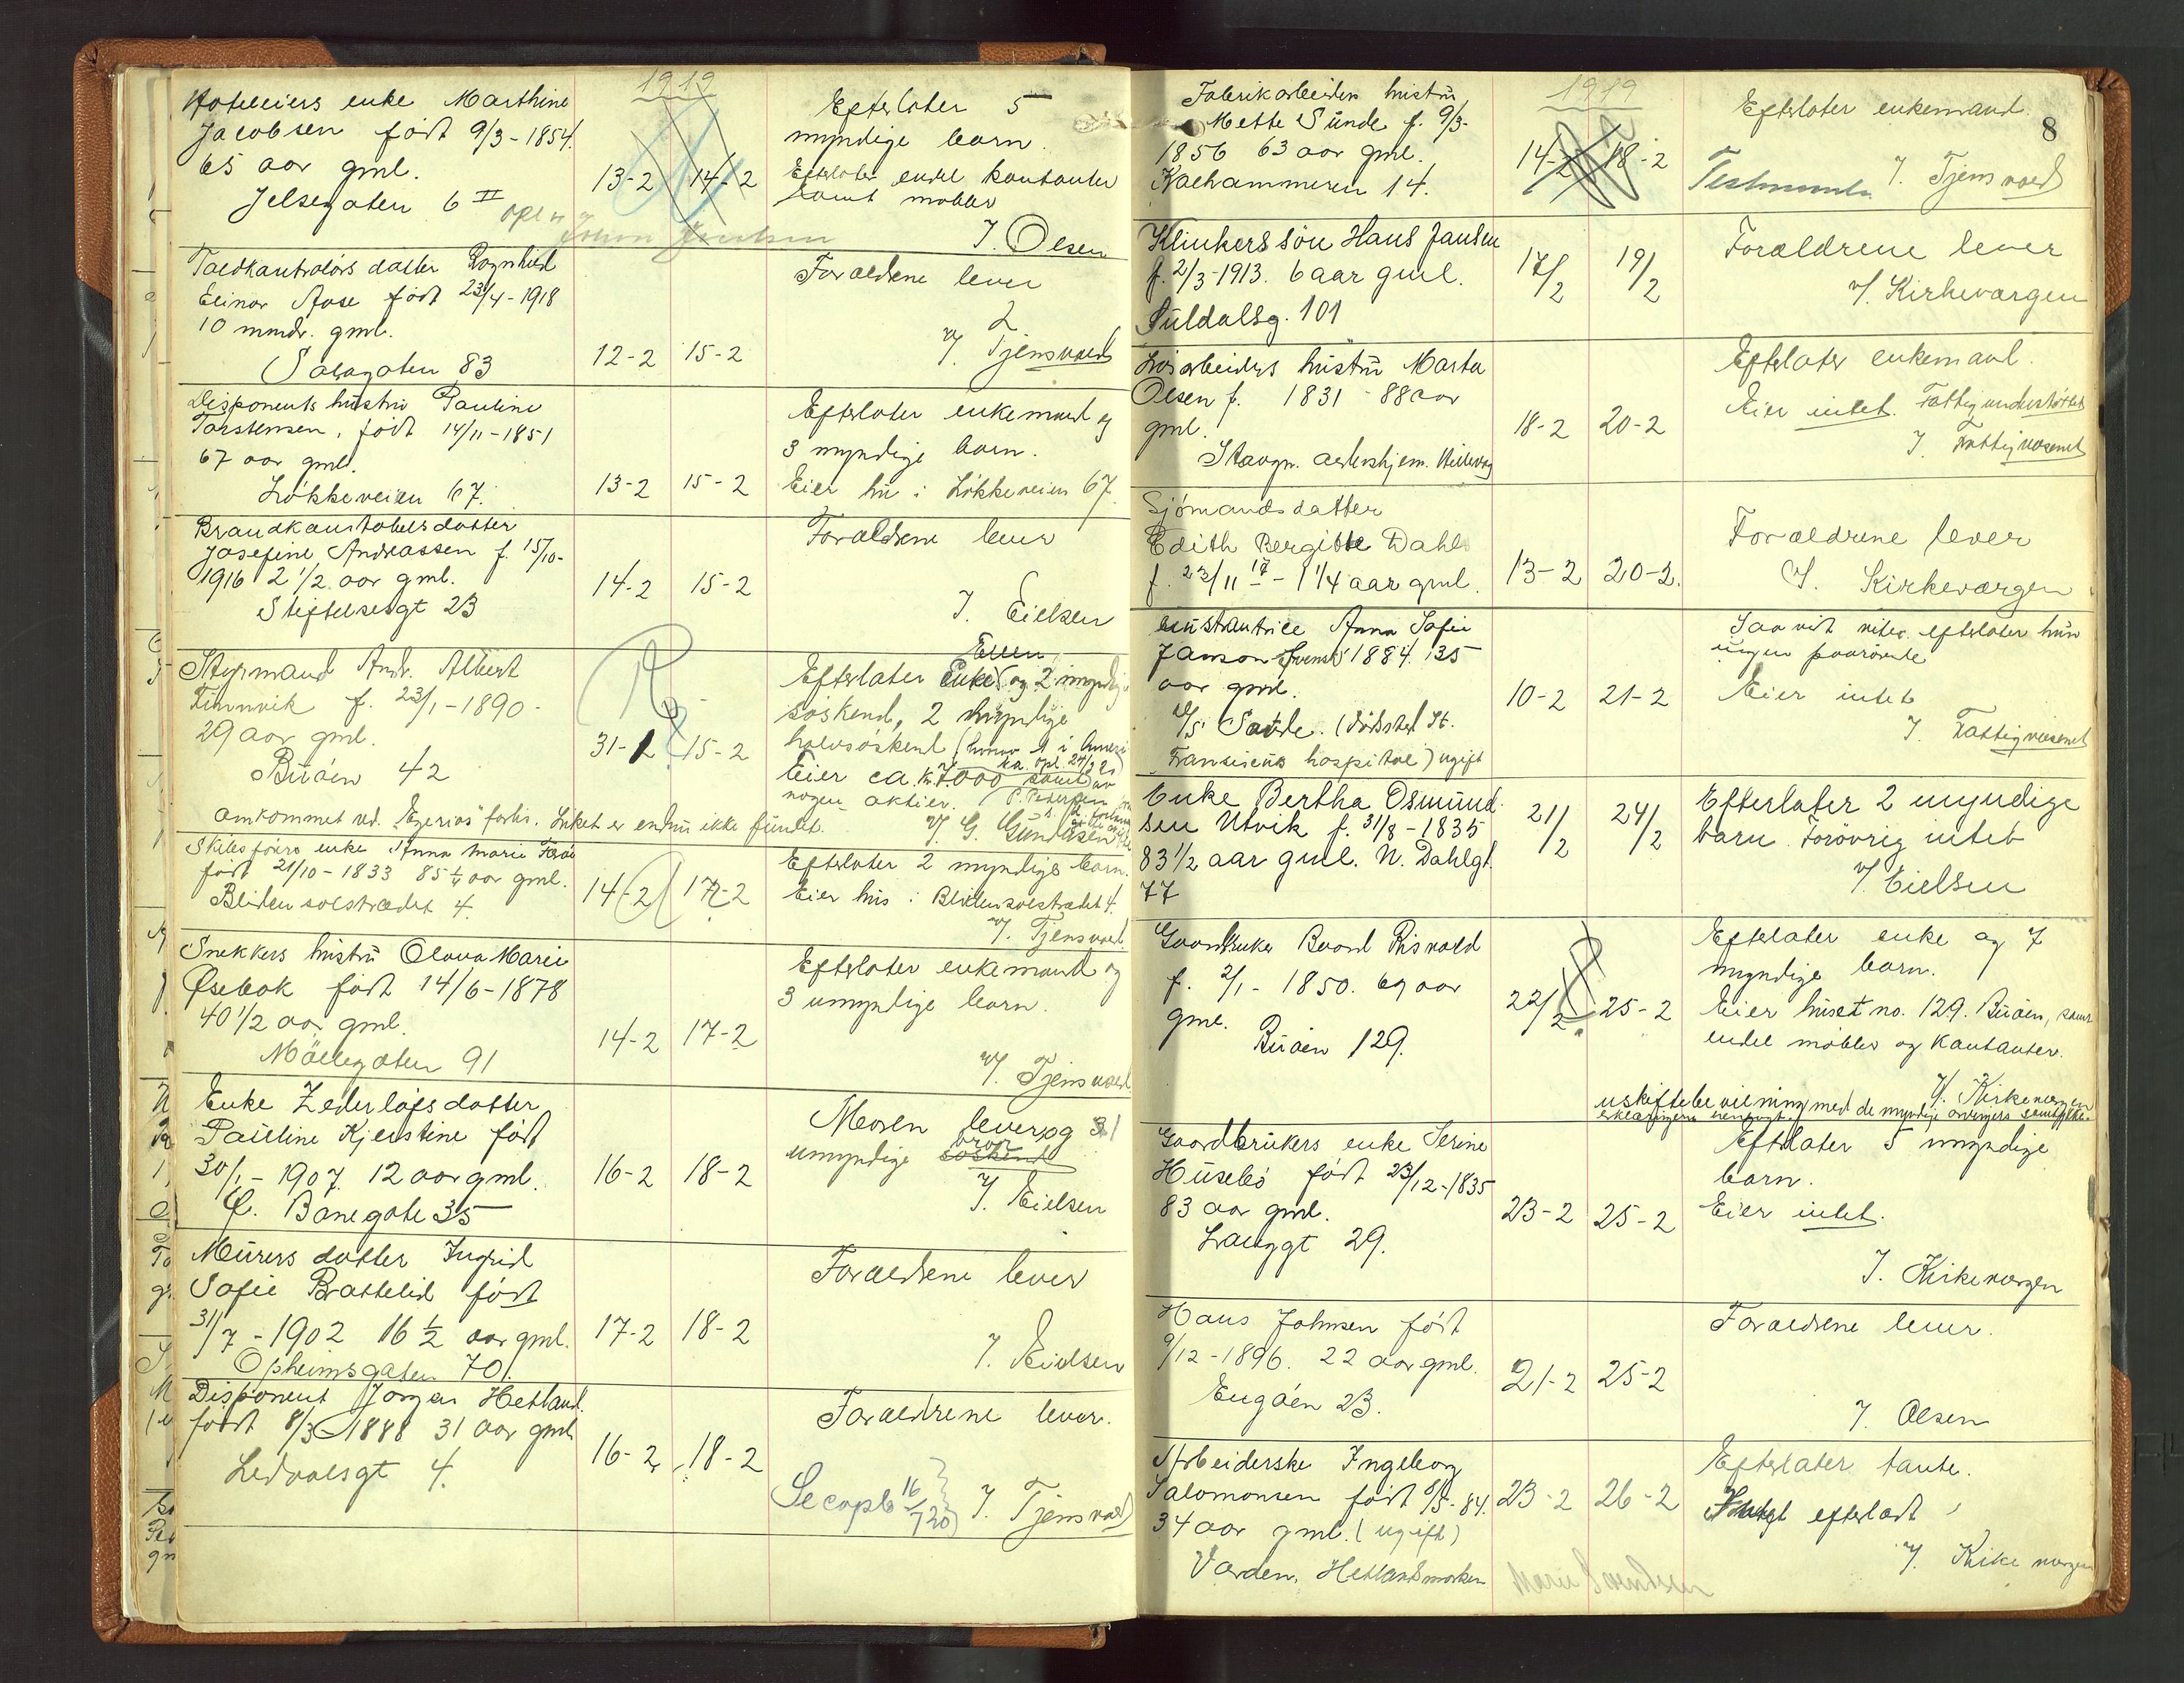 1919
Hoteleiers enke Marthine
Jacobsen født 9/3-1854.
65 aar gml.
Jelsegaten 6 II
13-2 14-2
Efterlater 5
myndige barn.
Efterlater endel kontanter
samt møbler
V. Olsen
Toldkontrolørs datter Ragnhild
Elinor Aase født 23/4-1918
10 mndr. gml.
83
12-2 15-2
Forældrene lever
V. Tjensvold
Disponents hustru Pauline
Torstensen, født 14/11-1851
67 aar gml.
Løkkeveien 67.
13-2 15-2
Efterlater enkemand og
3 myndige barn.
Eier hus i Løkkeveien 67.
Brandkonstabels datter
Josefine Andreassen f. 15/10-
1916 2 1/2 aar gml.
Stiftelsesgt 23
14-2 15-2
Forældrene lever
V. Eielsen
Styrmand Andr. Albert
Finnvik f. 23/1-1890-
29 aar gml.
Buøen 42
31-1 15-2
Efterlater Enke og 2 myndige
søskend, 2 myndige
halvsøskend (hvorav 1 i
Eier ca. kr. 7000 samt
nogen aktier.
V. G. Gundersen
omkommet ved "Egerias" forlis. Liket er endnu ikke fundet.
Skibsførers enke Anna Marie
født 21/10-1833 85 1/4 aar gml.
Blidensolstrædet 4.
14-2 17-2
Efterlater 2 myndige barn.
Eier hus i Blidensolstrædet 4.
V. Tjensvold
Snekkers hustru Olava Marie
Øsebak født 14/6-1878
40 1/2 aar gml.
Møllegaten 91
14-2 17-2
Efterlater enkemand og
3 umyndige barn.
V. Tjensvold
Enke Zederløfs datter
Pauline Kjerstine født
30/1-1907. 12 aar gml.
Ø. Banegate 35
16-2 18-2
Moren lever og 1
umyndige bror
V. Eielsen
Murers datter Ingrid
Sofie Brattelid født
31/7-1902 16 1/2 aar gml.
Opheimsgaten 70.
17-2 18-2
Forældrene lever
V. Eielsen
Disponent Jørgen Hetland
født 8/3 1888 31 aar gml.
Ledaalsgt 4.
16-2 18-2
Forældrene lever.
V. Tjensvold
1919
8
Fabrikarbeiders hustru
Mette Sunde f. 9/3-
1856 63 aar gml.
Kalhammeren 14.
14-2 18-2
Efterlater enkemand.
V. Tjensvold
Klinkers søn Hans Jansen
f. 2/3-1913. 6 aar gml.
Suldalsg. 101
17/2 19/2
Forældrene lever
v/. Kirkeværgen
Løsarbeiders hustru Marta
Olsen f. 1831 - 88 aar
gml.
Stavgn. aldershjem. Hillevåg
18-2 20-2
Efterlater enkemand.
Eier intet. Fattigunderstøttet
V. Fattigvæsenet
Sjømands datter
Edith Bergitte Dahl
f. 23/11 17 - 1 1/4 aar gml.
13-2 20-2.
Forældrene lever
V. Kirkeværgen
Anna Sofie
Janson Svensk 1884. 35
aar gml.
(dødssted St.
Fransiscus hospital) ugift
10-2 21-2
Saavidt vites efterlater hun
ingen paarørende
Eier intet
V. Fattigvæsenet
Enke Bertha Osmund-
sen Utvik f. 31/8-1835
83 1/2 aar gml. N. Dahlgt.
77
21/2 24/2
Efterlater 2 myndige
barn. Forøvrig intet
V. Eielsen
Gaardbruker Baard Risvold
f. 2/1-1850. 69 aar
gml.
Buøen 129.
22/2 25-2
Efterlater enke og 7
myndige barn.
Eier huset no. 129. Buøen, samt
endel møbler og kontanter.
V. Kirkevergen
uskiftebevilning med de myndige arvingers samtykke
Gaardbrukers enke Serine
Husebø født 23/12-1835
83 aar gml.
Langgt 29.
23-2 25-2
Efterlater 5 myndige
barn.
Eier intet.
V. Kirkevergen
Hans Johnsen født
9/12-1896. 22 aar gml.
Engøen 23.
21-2 25-2
Forældrene lever.
V. Olsen
Arbeiderske Ingeborg
Salomonsen født 5-84.
34 aar gml. (ugift)
Varden, Hetlandsmarken
23-2 26-2
Efterlater tante.
efterladt
V. Kirkevergen